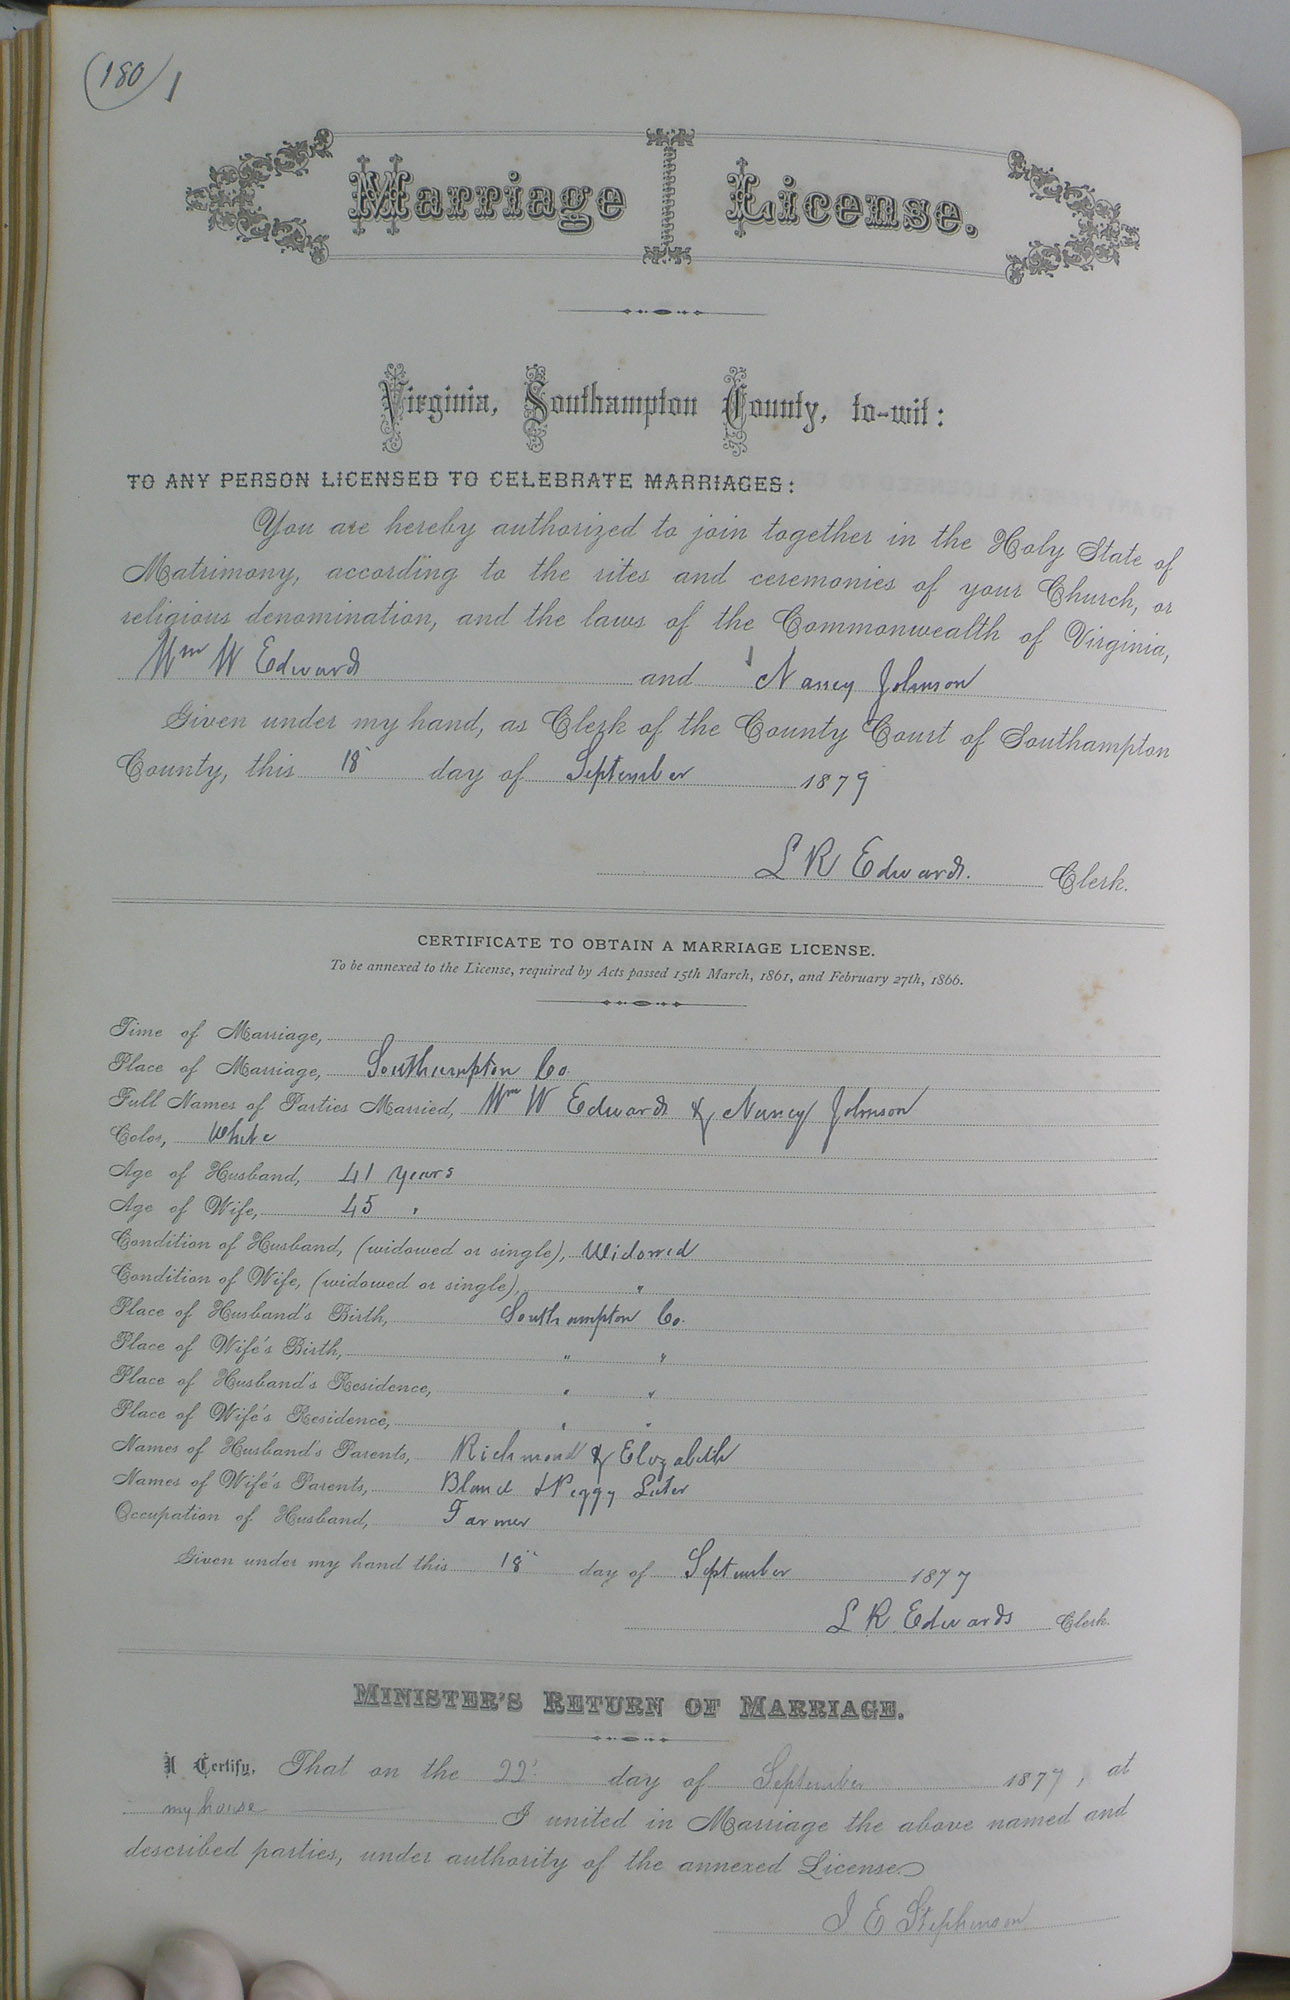 (180) 1
Marriage License.
Virginia, Southampton County, to-wit:
TO ANY PERSON LICENSED TO CELEBRATE MARRIAGES:
You are hereby authorized to join together in the Holy State of
Matrimony, according to the rites and ceremonies of your Church, or
religious denomination, and the laws of the Commonwealth of Virginia,
Wm W Edwards and Nancy Johnson
Given under my hand, as Clerk of the County Court of Southampton
County, this 18" day of September 1879
L R Edwards. Clerk.
CERTIFICATE TO OBTAIN A MARRIAGE LICENSE.
To be annexed to the License, required by Acts passed 15th March, 1861, and February 27th, 1866.
Time of Marriage,
Place of Marriage, Southampton Co.
Full Names of Parties Married, Wm W Edwards & Nancy Johnson
Color, White
Age of Husband, 41 years
Age of Wife, 45 "
Condition of Husband, (widowed or single), Widowed
Condition of Wife, (widowed or single), "
Place of Husband's Birth, Southampton Co.
Place of Wife's Birth, " "
Place of Husband's Residence, " "
Place of Wife's Residence, " "
Names of Husband's Parents, Richmond & Elizabeth
Names of Wife's Parents, Bland & Peggy Luter
Occupation of Husband, Farmer
Given under my hand this 18" day of September 1877
L R Edwards Clerk.
MINISTER'S RETURN OF MARRIAGE.
I Certify, That on the 22' day of September 1877, at
my house I united in Marriage the above named and
described parties, under authority of the annexed License.
J E Stephenson